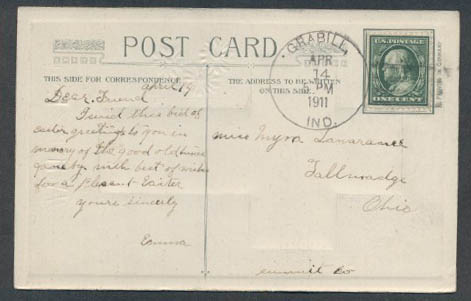 POST CARD.
THIS SIDE FOR CORRESPONDENCE
THE ADDRESS TO BE WRITTEN
ON THIS SIDE.
GRABILL,
APR
14
PM
1911
IND.
U.S. POSTAGE
ONE CENT
april 19
Dear Friend
I send this bit of
easter greetings to you in
memory of the good old times
gone by with best of wishes
for a Plesent Easter
yours sincerly
Emma
Miss Myra Lawarance
Tallmadge
Ohio
summit co